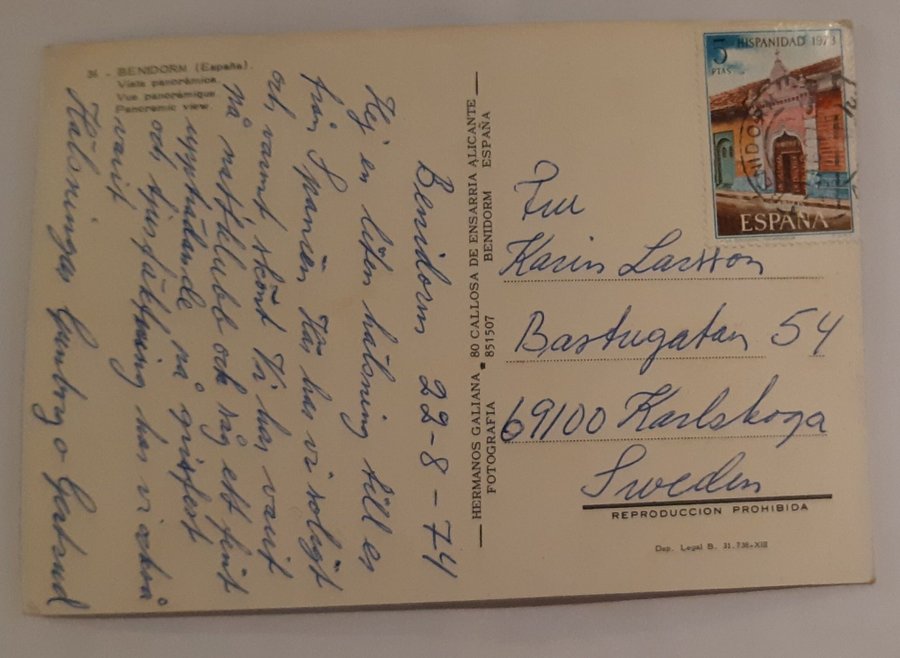 36 - BENIDORM (España).
Vista panorámica.
Vue panoramique.
Panoramic view.
Benidorm 22-8-74
Hej en liten hälsning till er
från Spanien Här har vi soligt
och varmt skönt Vi har varit
på nattklubb och såg ett fint
uppträdande på grisfest
och tjurfäktning har vi också
varit
Hälsningar Gunborg o Gertrud
HERMANOS GALIANA 80 CALLOSA DE ENSARRIA ALICANTE
FOTOGRAFIA 851507 BENIDORM ESPAÑA
5 PTAS
HISPANIDAD 1973
ESPAÑA
Fru
Karin Larsson
Bastugatan 54
69100 Karlskoga
Sweden
REPRODUCCION PROHIBIDA
Dep. Legal B. 31.736-XIII